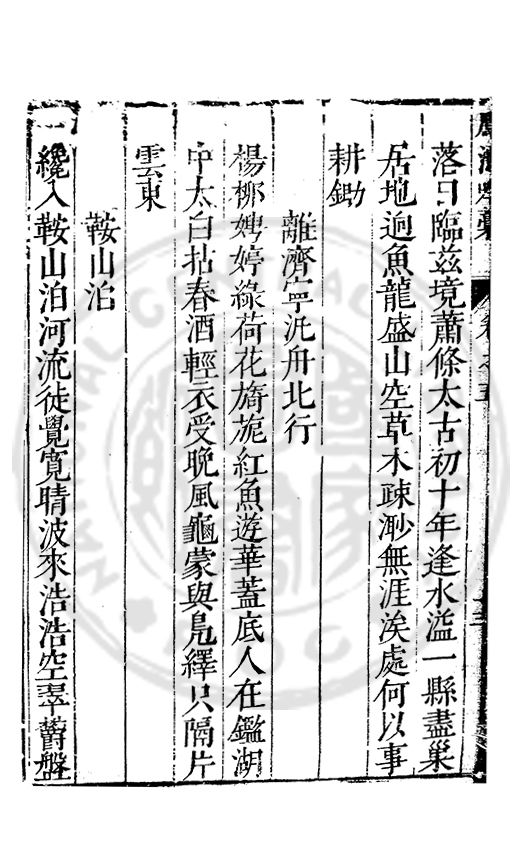 落日臨茲境蕭條太古初十年逢水溢一縣盡巢
居地迥魚龍盛山空草木疎渺無涯涘處何以事
耕鋤
離濟寧汎舟北行
楊柳娉婷綠荷花旖旎紅魚遊華蓋底人在鑑湖
中太白拈春酒輕衣受晚風龜蒙與鳧繹只隔片
雲東
鞍山泊
一纔入鞍山泊河流徒覺寬晴波來浩浩空翠鬱盤